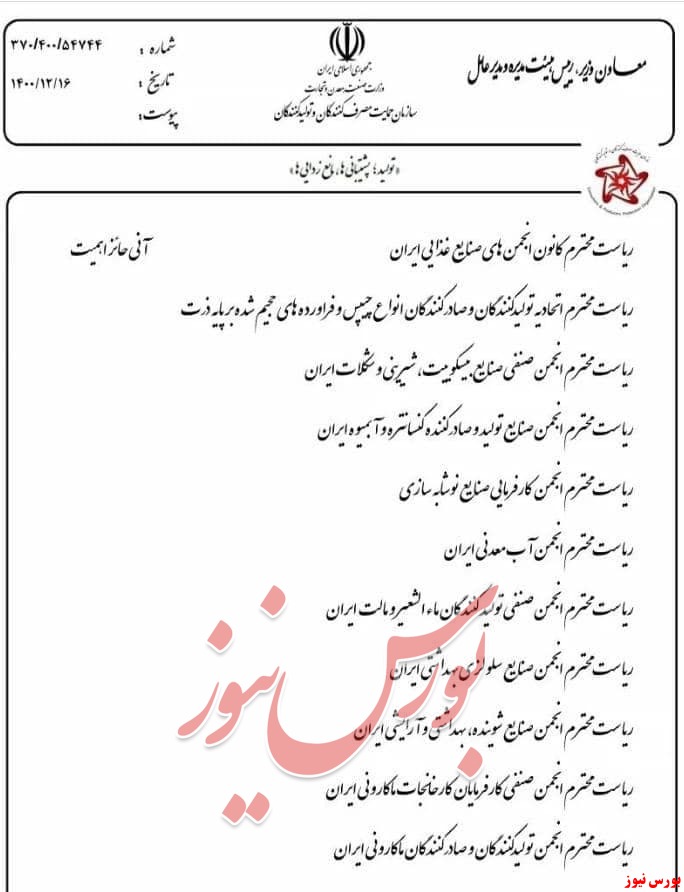 معاون وزیر، رییس هیئت مدیره و مدیرعامل
جمهوری اسلامی ایران
وزارت صنعت، معدن و تجارت
سازمان حمایت مصرف کنندگان و تولیدکنندگان
شماره : ۳۷۰/۴۰۰/۵۴۷۴۴
تاریخ : ۱۴۰۰/۱۲/۱۶
پیوست:
«تولید؛ پشتیبانی ها، مانع زدایی ها»
ریاست محترم کانون انجمن های صنایع غذایی ایران
آنی حائز اهمیت
ریاست محترم اتحادیه تولیدکنندگان و صادرکنندگان انواع چیپس و فراورده های حجیم شده بر پایه ذرت
ریاست محترم انجمن صنفی صنایع بیسکوییت، شیرینی و شکلات ایران
ریاست محترم انجمن صنایع تولید و صادرکننده کنسانتره و آبمیوه ایران
ریاست محترم انجمن کارفرمایی صنایع نوشابه سازی
ریاست محترم انجمن آب معدنی ایران
ریاست محترم انجمن صنفی تولیدکنندگان ماء الشعیر و مالت ایران
ریاست محترم انجمن صنایع سلولزی بهداشتی ایران
ریاست محترم انجمن صنایع شوینده، بهداشتی و آرایشی ایران
ریاست محترم انجمن صنفی کارفرمایان کارخانجات ماکارونی ایران
ریاست محترم انجمن تولیدکنندگان و صادرکنندگان ماکارونی ایران
بورس نیوز
بورس نیوز